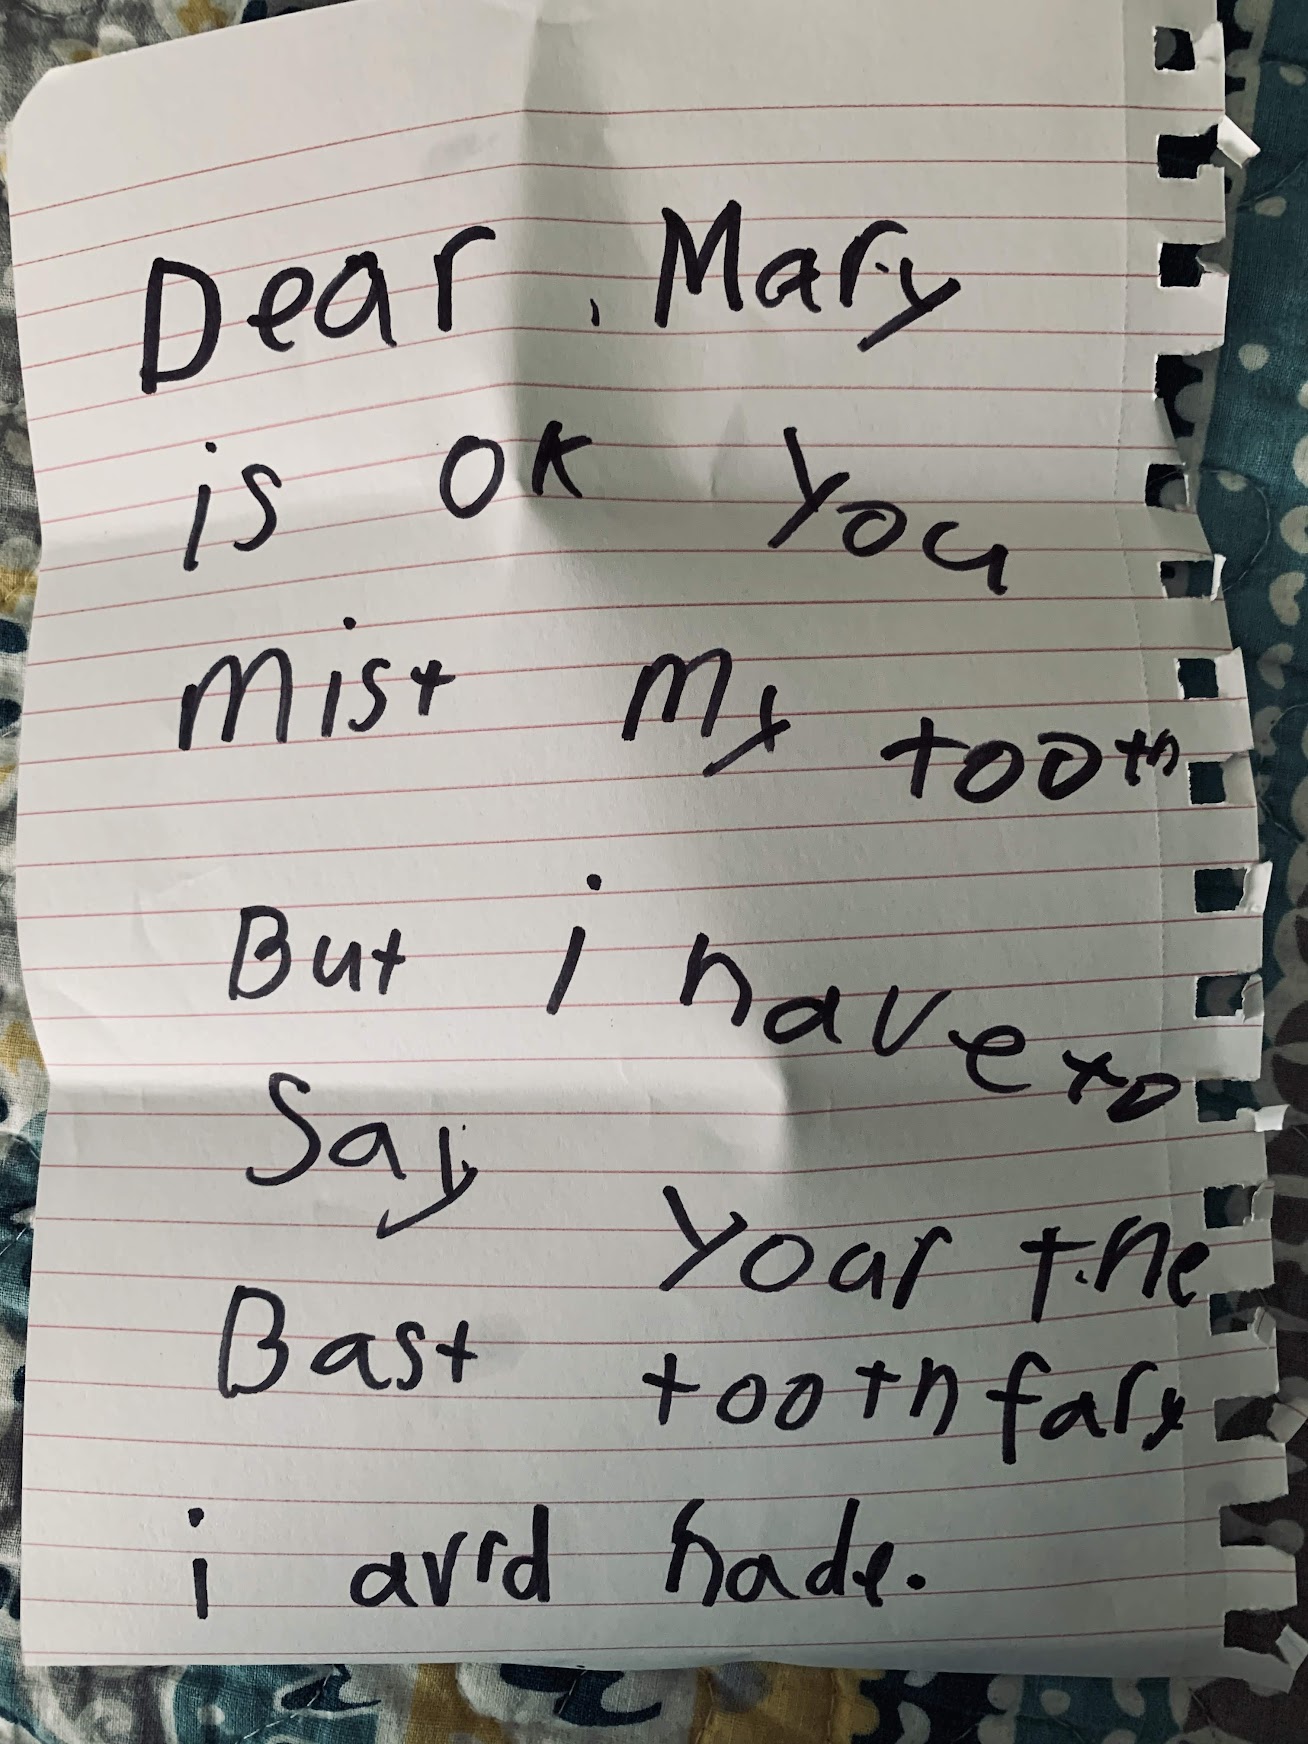 Dear, Mary
is ok you
mist my tooth
But i have to
Say your the
Bast tooth fary
i avrd hade.